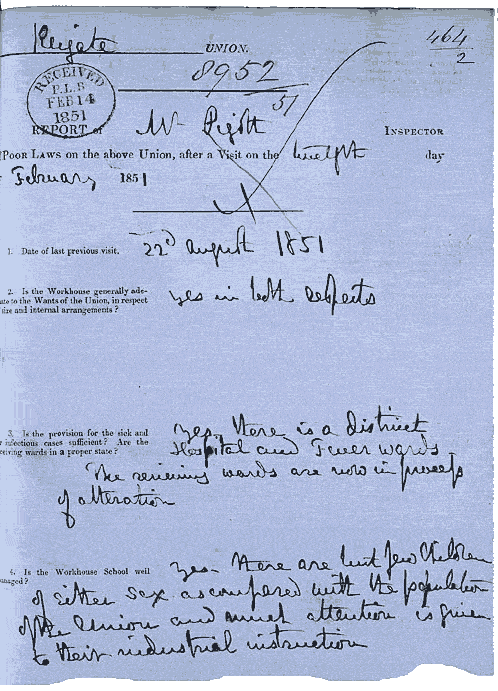 Reigate UNION.
464
2
8952
51
RECEIVED
P.L.B
FEB 14
1851
REPORT of Mr Pigott INSPECTOR
POOR LAWS on the above Union, after a Visit on the twelfth day
February 1851
1. Date of last previous visit. 22d august 1851
2. Is the Workhouse generally ade-
uate to the Wants of the Union, in respect
size and internal arrangements?
yes in both respects
3. Is the provision for the sick and
r infectious cases sufficient? Are the
ceiving wards in a proper state?
yes. there is a district
Hospital and Fever wards
The receiving wards are now in process
of alteration
4. Is the Workhouse School well
anaged?
yes - there are but few Children
of either sex as compared with the population
of the Union and much attention is given
to their industrial instruction